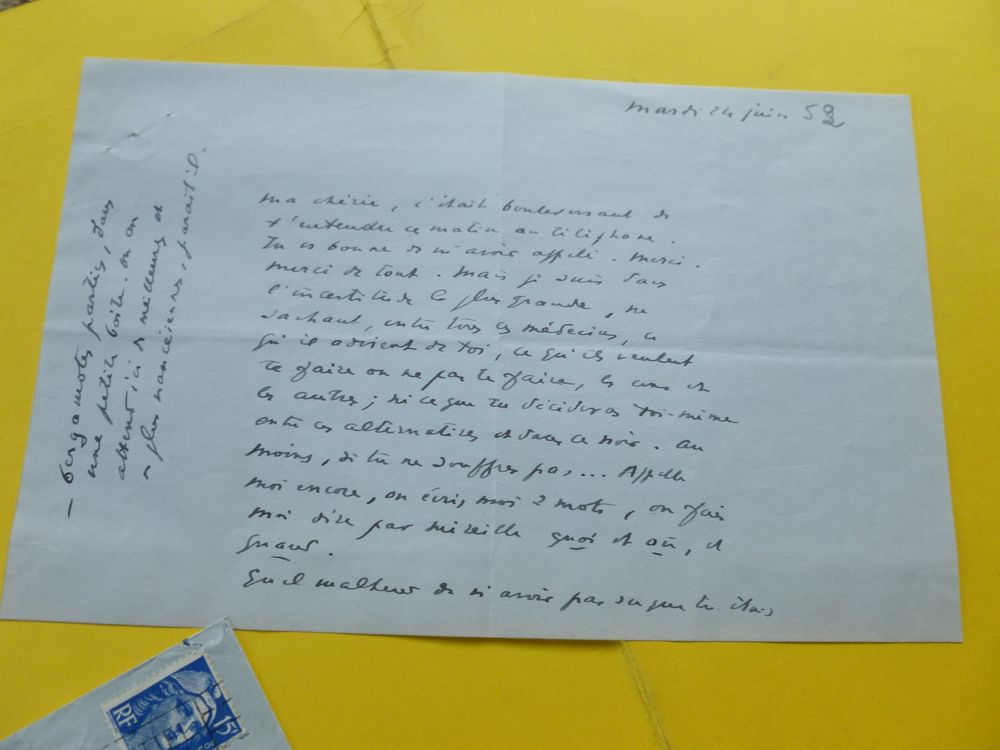 mardi 24 juin 52
ma chérie, c'était bouleversant de
t'entendre ce matin au téléphone.
Tu es bonne de m'avoir appelé. Merci.
merci de tout. mais je suis dans
l'incertitude la plus grande, ne
sachant, entre tous ces médecins, ce
qui advient de toi, ce qu'ils veulent
te faire ou ne pas te faire, les uns et
les autres ; ni ce que tu décideras toi-même
entre ces alternatives et dans ce noir. Au
moins, si tu ne souffres pas... Appelle
moi encore, ou écris moi 2 mots, ou fais
moi dire par Mireille quoi et où, et
quand.
Quel malheur de n'avoir pas su que tu étais
— bergamotes parties, dans
une petite boîte. on en
attend ici de meilleures et
+ plus nancéiennes, paraît-il.
RF
15F